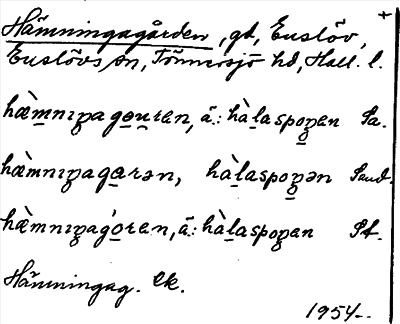 +
Hämningagården, gd, Euslöv,
Euslövs sn, Tönnersjö hd, Hall. l.
hæ̀mnıŋagɑu̯ren, ä.: hàlaspoŋen Sa.
hæ̀mnıŋagɑrən, hàlaspoŋən Sand.
hæ̀mnıŋagòren, ä.: hàlaspoŋen St.
Hämningag. ek.
1954.